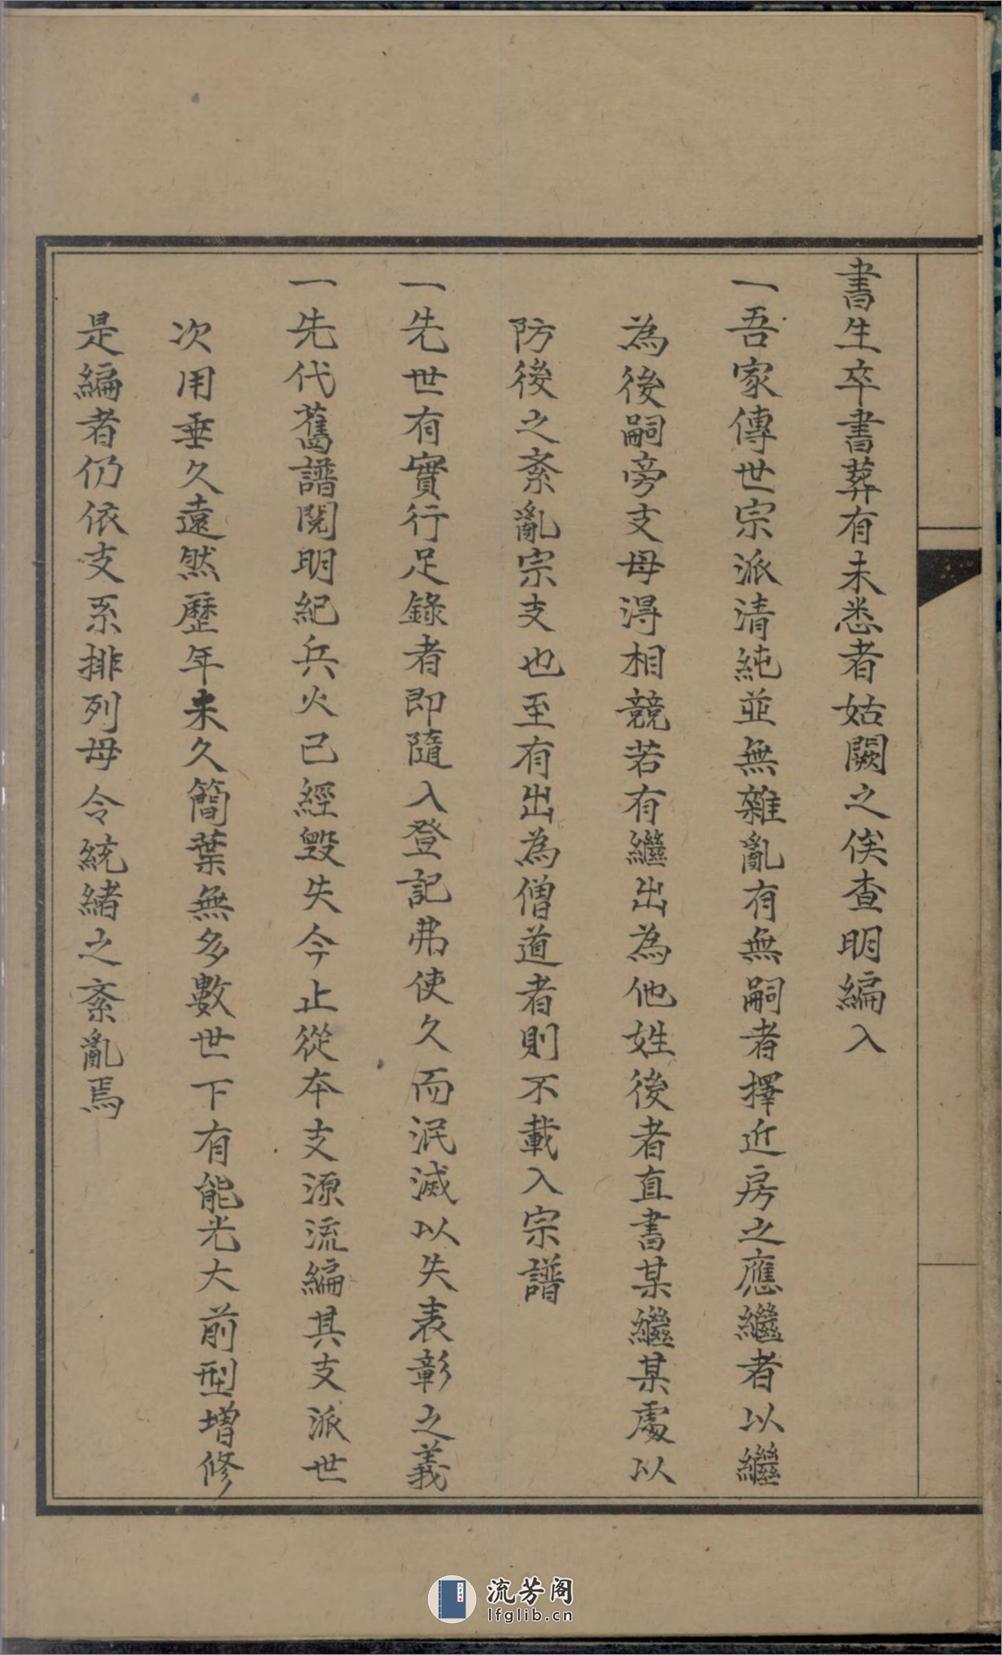 書生卒書葬有未悉者姑闕之俟查明編入
一吾家傳世宗派清純並無雜亂有無嗣者擇近房之應繼者以繼
為後嗣旁支毋得相競若有繼出為他姓後者直書某繼某處以
防後之紊亂宗支也至有出為僧道者則不載入宗譜
一先世有實行足錄者即隨入登記弗使久而泯滅以失表彰之義
一先代舊譜閱明紀兵火已經毀失今止從本支源流編其支派世
次用垂久遠然歷年未久簡葉無多數世下有能光大前型增修
是編者仍依支系排列毋令統緒之紊亂焉
流芳阁
lfglib.cn